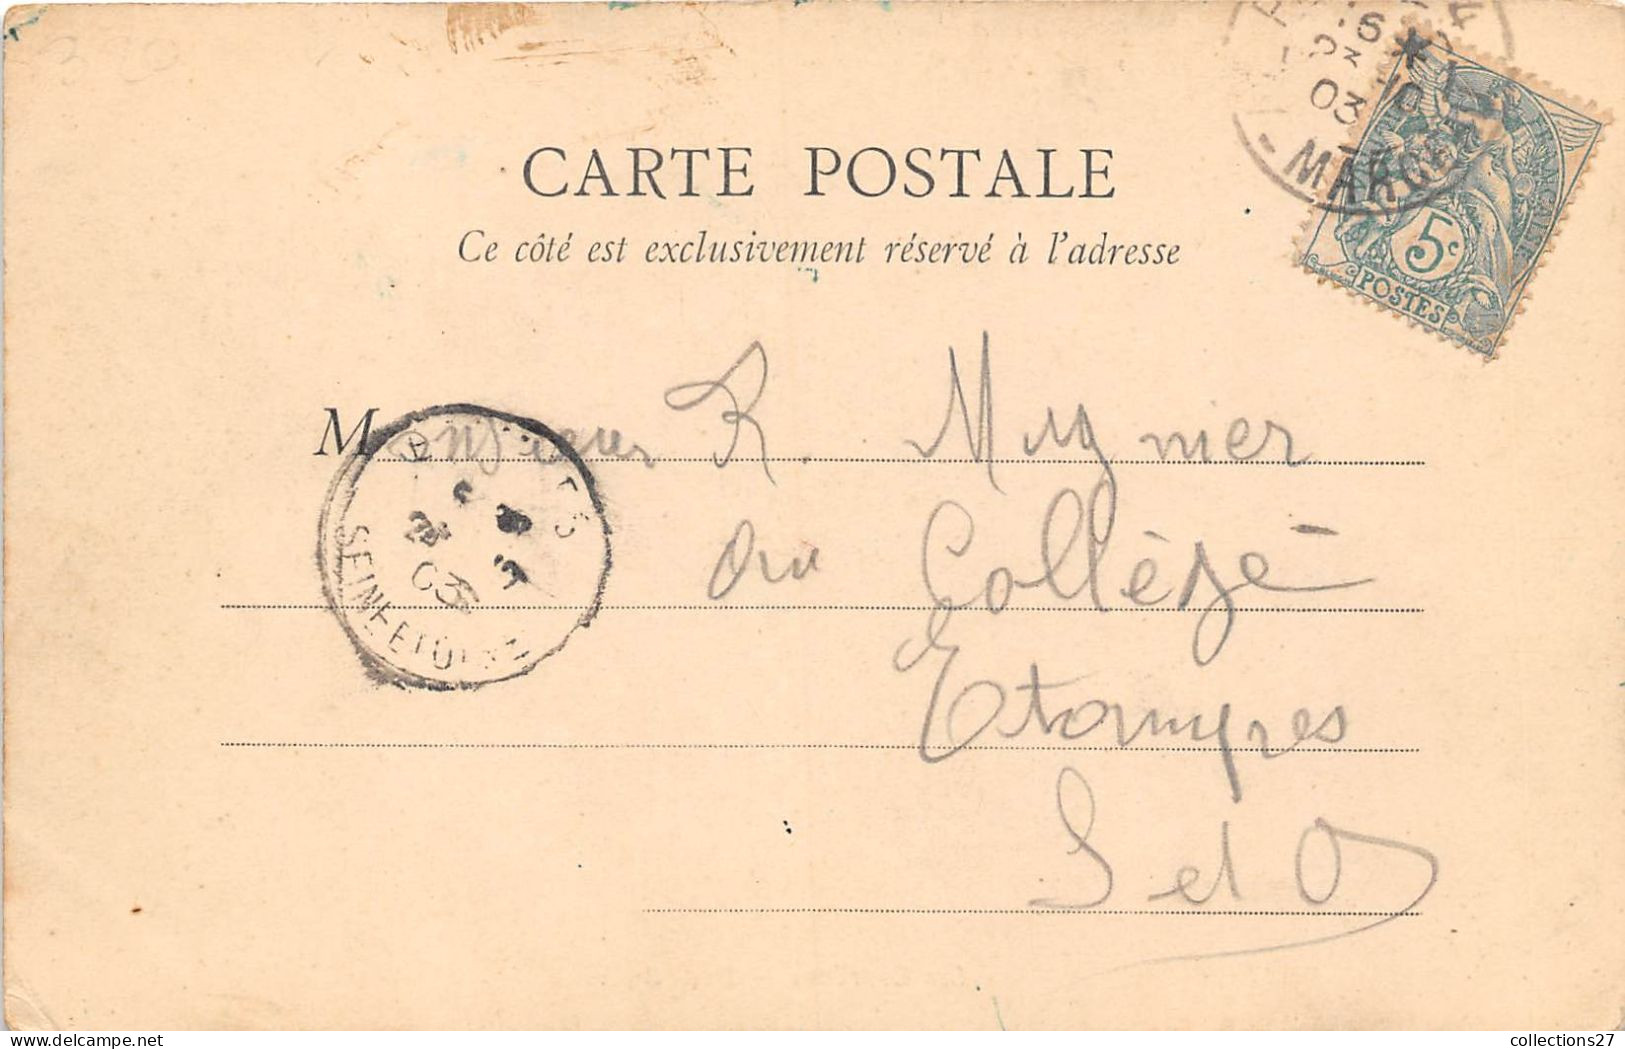 CARTE POSTALE
Ce côté est exclusivement réservé à l'adresse
5c
POSTES
03
Monsieur R. Mugnier
au Collège
Etampes
S et O
03
SEINE ET OISE
collections27